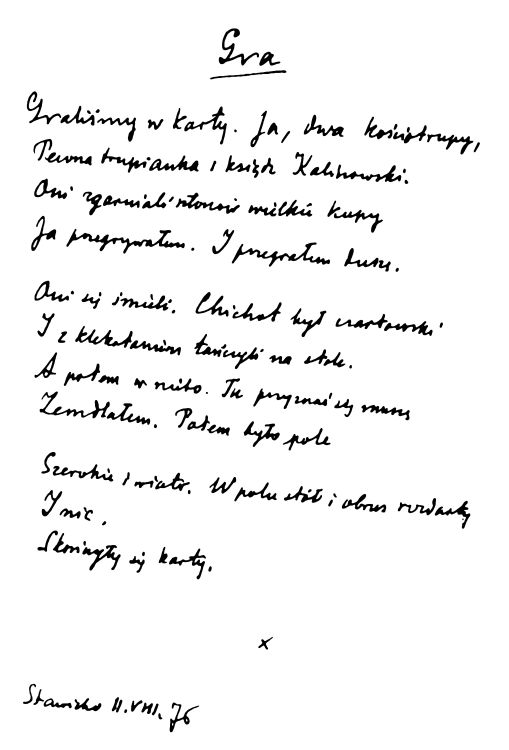 Gra
Graliśmy w karty. Ja, dwa kościotrupy,
Pewna trupianka i ksiądz Kalinowski.
Oni zgarniali stosów wielkie kupy
Ja przegrywałem. I przegrałem duszę.
Oni się śmieli. Chichot był czartowski
I z klekotaniem tańczyli na stole.
A potem w niebo. Tu przyznać się muszę
Zemdlałem. Potem było pole
Szerokie i wiatr. W polu stół i obrus rozdarty
I nic.
Skończyły się karty.
x
Stawisko 11.VIII.76